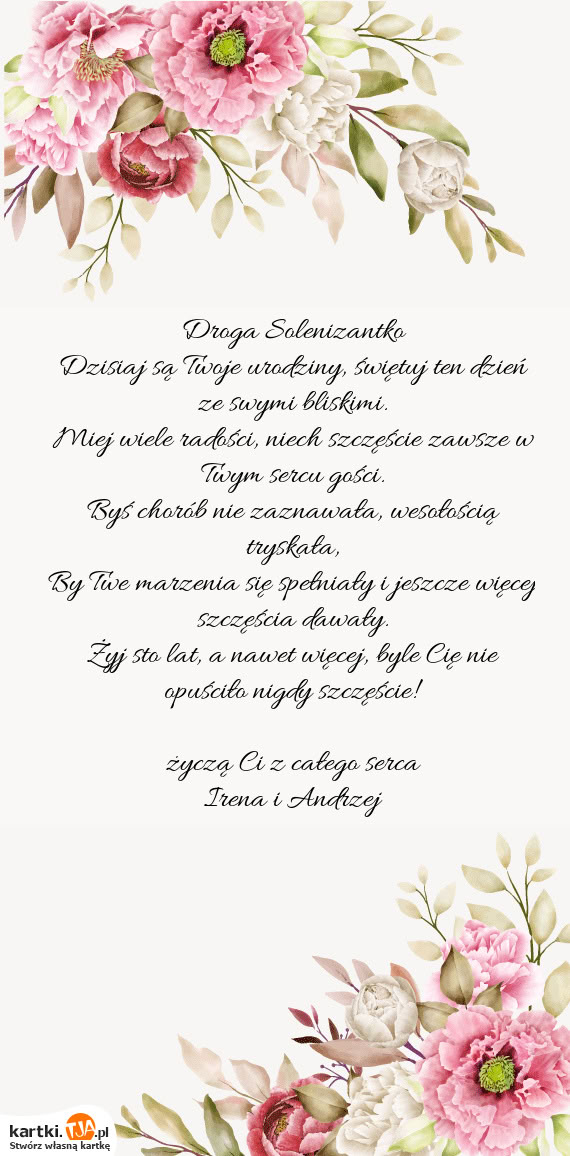 Droga Solenizantko
Dzisiaj są Twoje urodziny, świętuj ten dzień
ze swymi bliskimi.
Miej wiele radości, niech szczęście zawsze w
Twym sercu gości.
Byś chorób nie zaznawała, wesołością
tryskała,
By Twe marzenia się spełniały i jeszcze więcej
szczęścia dawały.
Żyj sto lat, a nawet więcej, byle Cię nie
opuściło nigdy szczęście!
życzą Ci z całego serca
Irena i Andrzej
kartki.TJA.pl
Stwórz własną kartkę